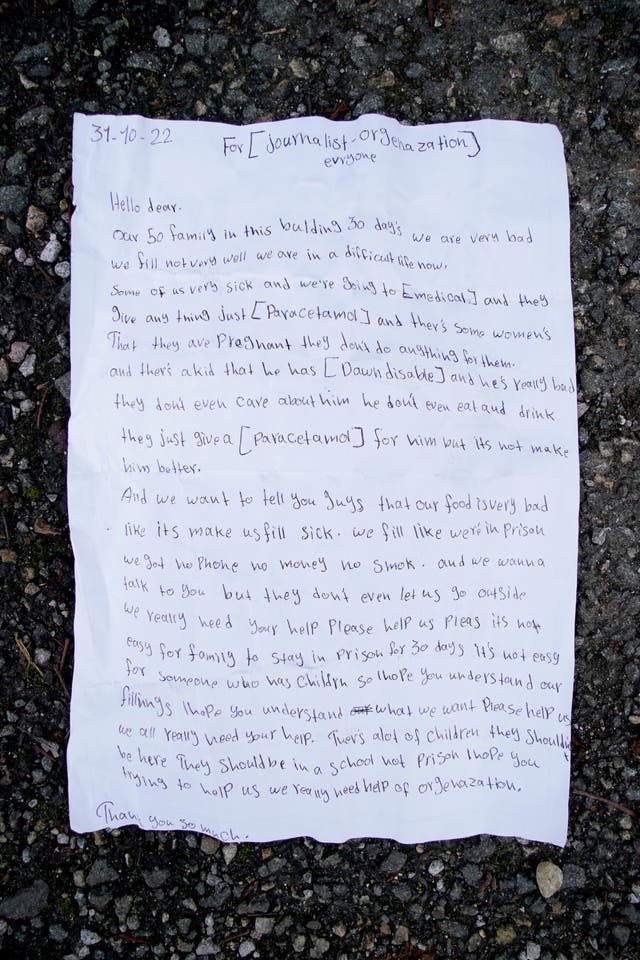 31-10-22
For [journalist-orgenazation]
evryone
Hello dear.
our 50 family in this bulding 30 day's we are very bad
we fill not very well we are in a difficult life now.
some of us very sick and we're going to [medical] and they
give any thing Just [Paracetamol] and ther's some women's
That they are Pregnant they don't do anything for them.
and ther's a kid that he has [Dawn disable] and he's really bad
they don't even care about him he don't even eat and drink
they just give a [Paracetamol] for him but its not make
him better.
And we want to tell you guys that our food is very bad
like its make us fill sick. we fill like we're in prison
we got no phone no money no smok. and we wanna
talk to you but they don't even let us go outside
we really need your help Please help us pleas its not
easy for family to stay in prison for 30 days it's not easy
for someone who has childrn so I hope you understand our
fillings I hope you understand what we want Please help us
we all really need your help. Ther's alot of children they shouldn't
be here They should be in a school not prison I hope you
trying to help us we really need help of orgenazation.
Thank you so much.